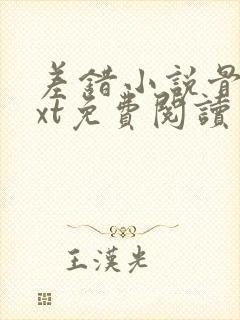 差錯小說最
xt免費閱讀
王漢光